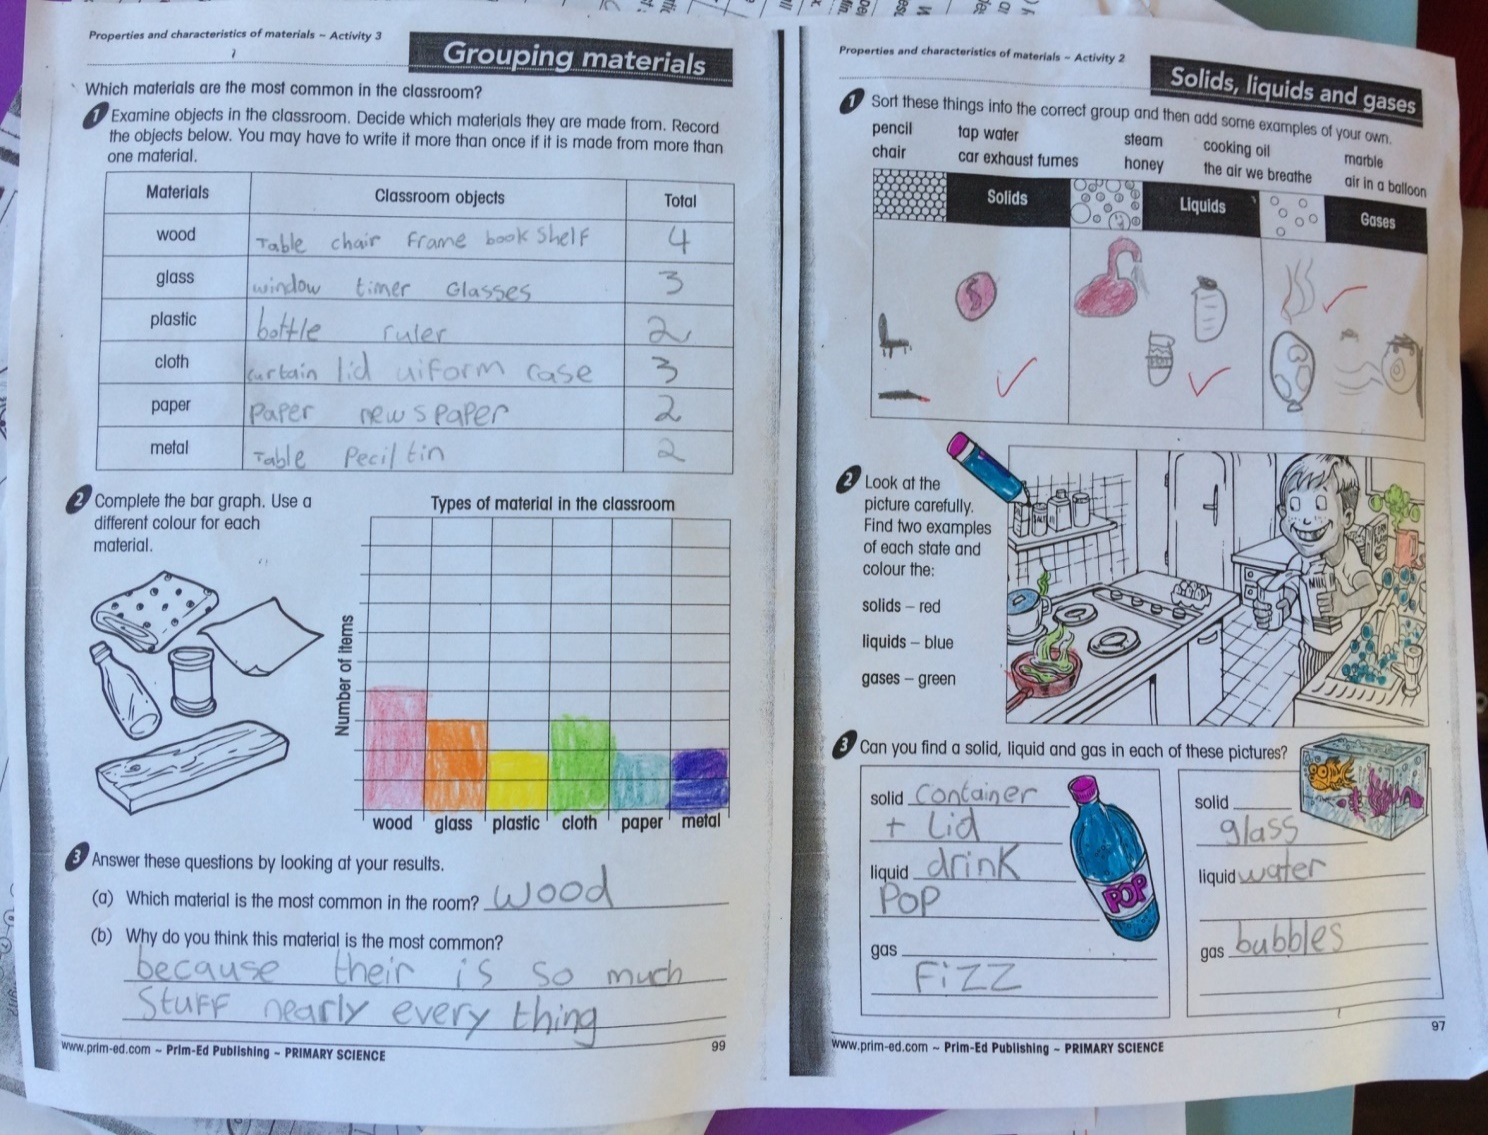 Properties and characteristics of materials – Activity 3
Grouping materials
Which materials are the most common in the classroom?
1 Examine objects in the classroom. Decide which materials they are made from. Record
the objects below. You may have to write it more than once if it is made from more than
one material.
Materials Classroom objects Total
wood Table chair frame book shelf 4
glass window timer Glasses 3
plastic bottle ruler 2
cloth curtain lid uiform case 3
paper paper newspaper 2
metal Table Pecil tin 2
2 Complete the bar graph. Use a
different colour for each
material.
Types of material in the classroom
Number of items
wood glass plastic cloth paper metal
3 Answer these questions by looking at your results.
(a) Which material is the most common in the room? wood
(b) Why do you think this material is the most common?
because their is so much
Stuff nearly every thing
www.prim-ed.com ~ Prim-Ed Publishing ~ PRIMARY SCIENCE 99
Properties and characteristics of materials – Activity 2
Solids, liquids and gases
1 Sort these things into the correct group and then add some examples of your own.
pencil tap water steam cooking oil marble
chair car exhaust fumes honey the air we breathe air in a balloon
Solids Liquids Gases
2 Look at the
picture carefully.
Find two examples
of each state and
colour the:
solids – red
liquids – blue
gases – green
3 Can you find a solid, liquid and gas in each of these pictures?
solid container
+ Lid
liquid drink
Pop
gas
Fizz
POP
solid
glass
liquid water
gas bubbles
www.prim-ed.com ~ Prim-Ed Publishing ~ PRIMARY SCIENCE
97